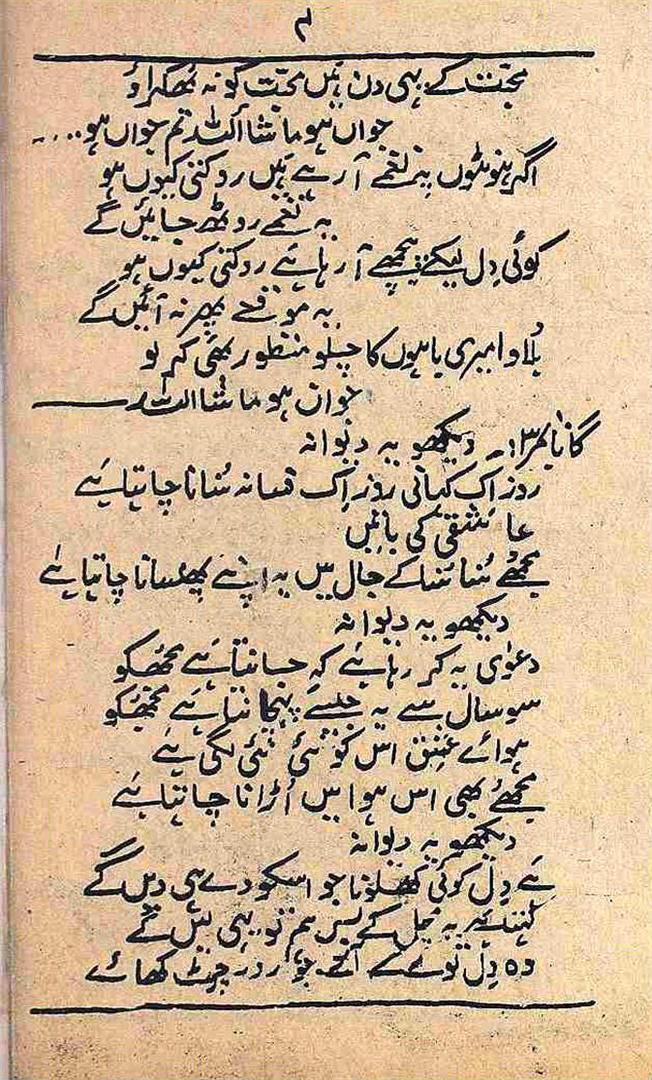 ۴
محبّت کے یہی دن ہیں محبّت کو نہ ٹھکراؤ
جواں ہو ماشاﷲ تم جواں ہو....
اگر ہونٹوں پہ نغمے آ رہے ہیں روکتی کیوں ہو
یہ نغمے روٹھ جائیں گے
کوئی دِل لیکے پیچھے آ رہا ہے روکتی کیوں ہو
یہ موقعے پھر نہ آئیں گے
بُلاوا میری باہوں کا چلو منظور بھی کر لو
جوان ہو ماشاﷲ
گانا نمبر ۳:۔ دیکھو یہ دیوانہ
روز اِک کہانی روز اِک فسانہ سُنانا چاہتا ہے
عاشقی کی باتیں
مجھے سُنا سُنا کے جال میں یہ اپنے پھنسانا چاہتا ہے
دیکھو یہ دیوانہ
دعوٰی یہ کر رہا ہے کہ جانتا ہے مجھکو
سو سال سے یہ جیسے پہچانتا ہے مجھکو
ہوائے عشق اس کو نئی نئی لگی ہے
مجھے بھی اس ہوا میں اُڑانا چاہتا ہے
دیکھو یہ دیوانہ
ہے دِل کوئی کھلونا جو اسکو دے ہی دیں گے
کہتا ہے یہ مچل کے بس ہم تو یہی لیں گے
وہ دِل تو لے کے آئے جو درد چوٹ کھائے